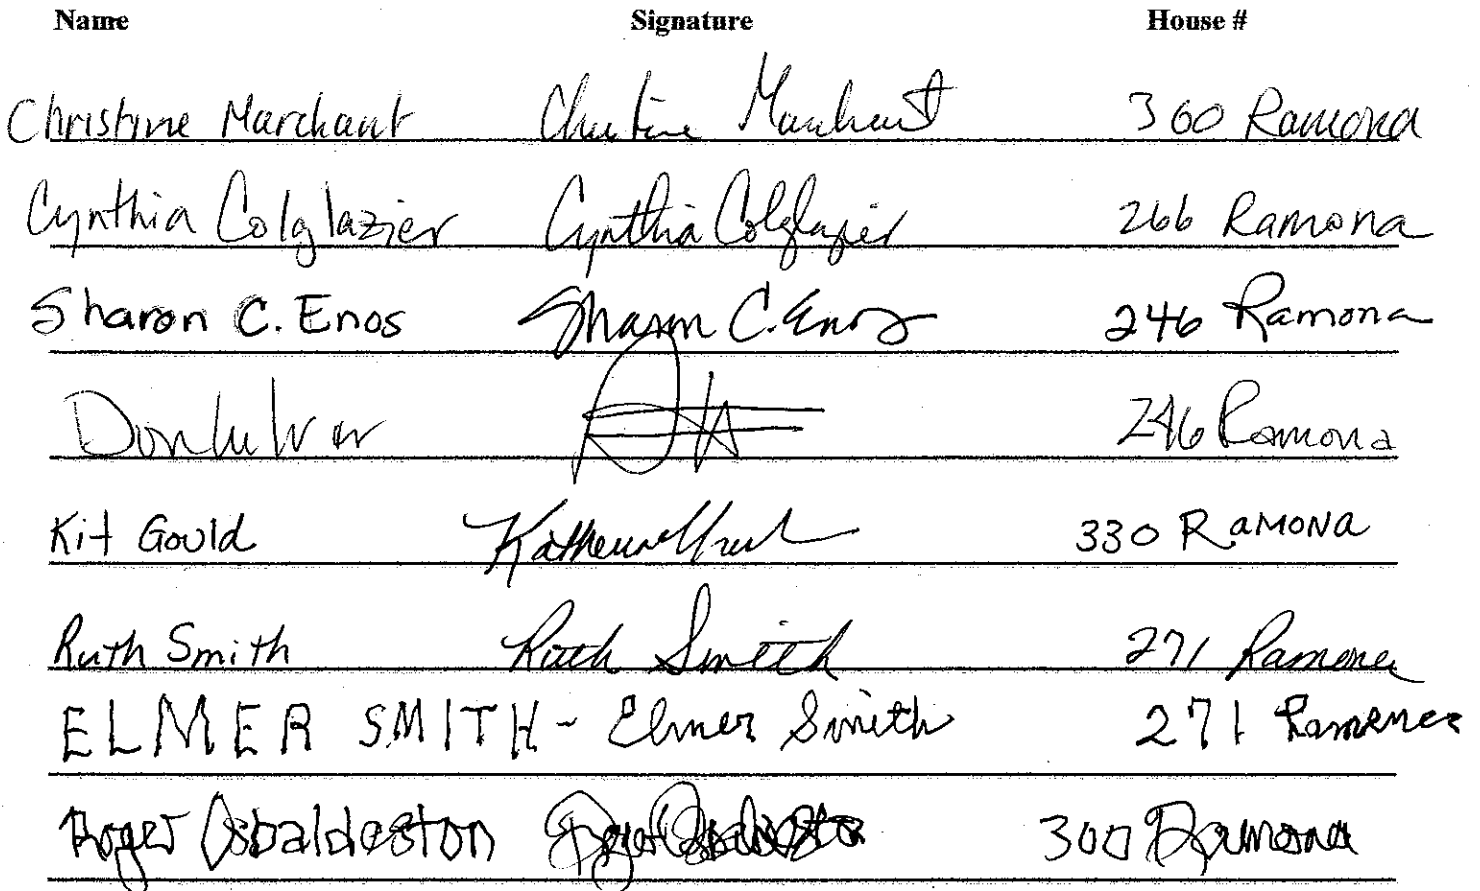 Name Signature House #
Christine Marchant Christine Marchant 360 Ramona
Cynthia Colglazier Cynthia Colglazier 266 Ramona
Sharon C. Enos Sharon C. Enos 246 Ramona
246 Ramona
Kit Gould 330 RAMONA
Ruth Smith Ruth Smith 271 Ramona
ELMER SMITH - Elmer Smith 271 Ramona
Roger Osbaldeston Roger Osbaldeston 300 Ramona